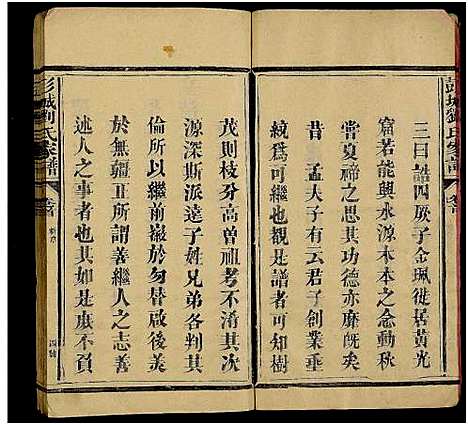 彭城劉氏家譜
三曰諧四族子金珮徙居黃光
窩若能與水源木本之念動秋
嘗夏禘之思其功德亦靡旣矣
昔孟夫子有云君子創業垂
統爲可繼也觀是譜者可知樹
茂則枝分高曾祖考不淆其次
源深斯派遠子姓兄弟各判其
倫所以繼前徽於勿替啟後羙
於無疆正所謂善繼人之志善
述人之事者也其如是庶不負
彭城劉氏家譜
卷首